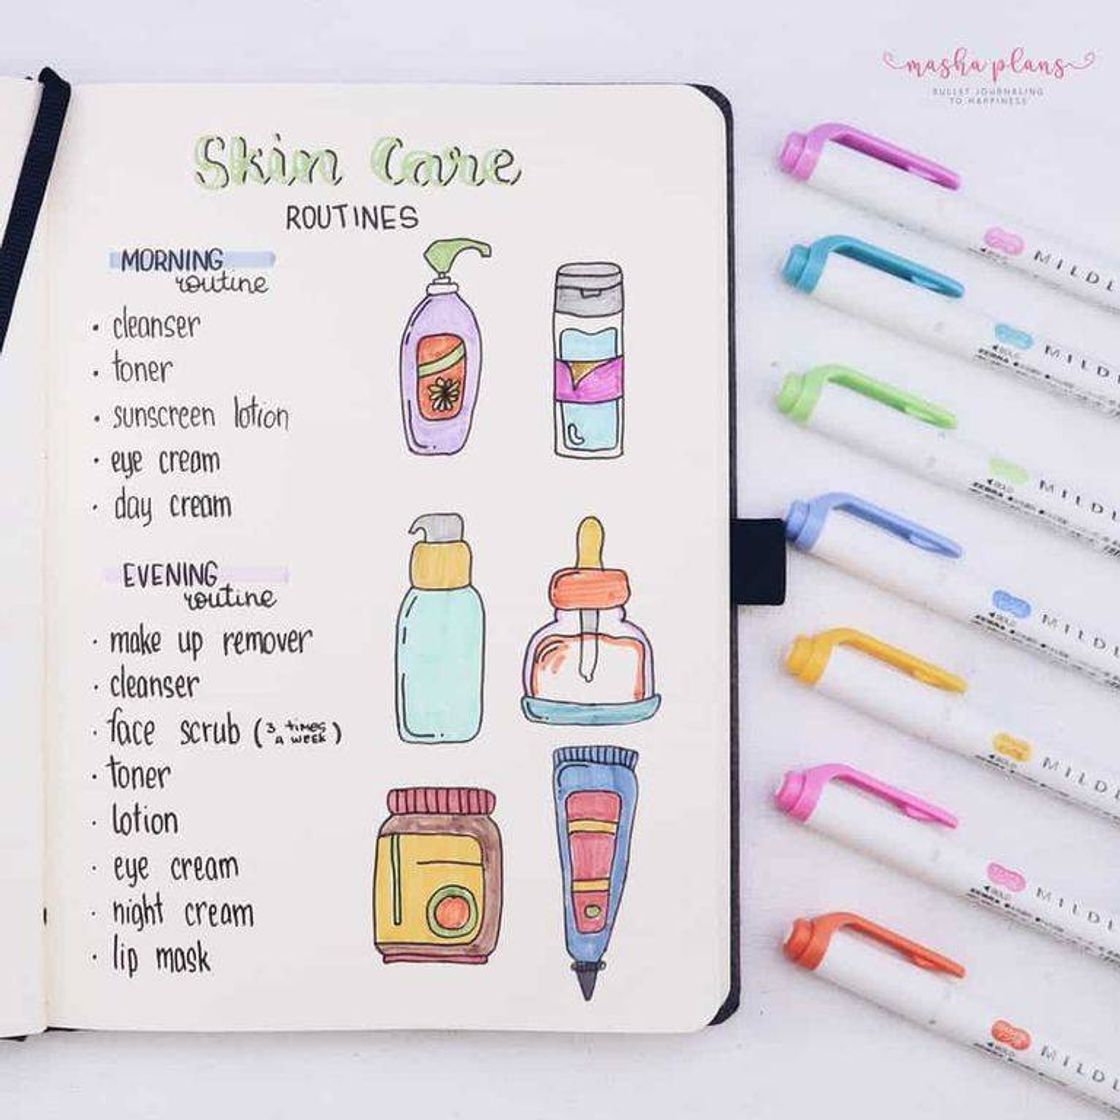 masha plans
BULLET JOURNALING
TO HAPPINESS
Skin Care
ROUTINES
MORNING
routine
• cleanser
• toner
• sunscreen lotion
• eye cream
• day cream
EVENING
routine
• make up remover
• cleanser
• face scrub (3 times
a week)
• toner
• lotion
• eye cream
• night cream
• lip mask
MILDL
MILDL
BOLD
ZEBRA
MILDL
BOLD
ZEBRA
MILDL
BOLD
ZEBRA
MILDL
BOLD
ZEBRA
MILDL
BOLD
ZEBRA
MILDL
BOLD